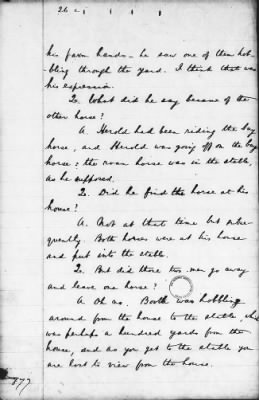 26
his farm hands - he saw one of them hob-
bling through the yard. I think that was
his expression.
Q. What did he say became of the
other horse?
A. Herold had been riding the bay
horse, and Herold was going off on the bay
horse: the roan horse was in the stable,
as he supposed.
Q. Did he find the horse at his
house?
A. Not at that time but subse-
quently. Both horses were at his house
and put into the stable.
Q. But did those two men go away
and leave one horse?
A. Oh no. Booth was hobbling
around from the house to the stable, which
was perhaps a hundred yards from the
house, and as you get to the stable you
are lost to view from the house.
877